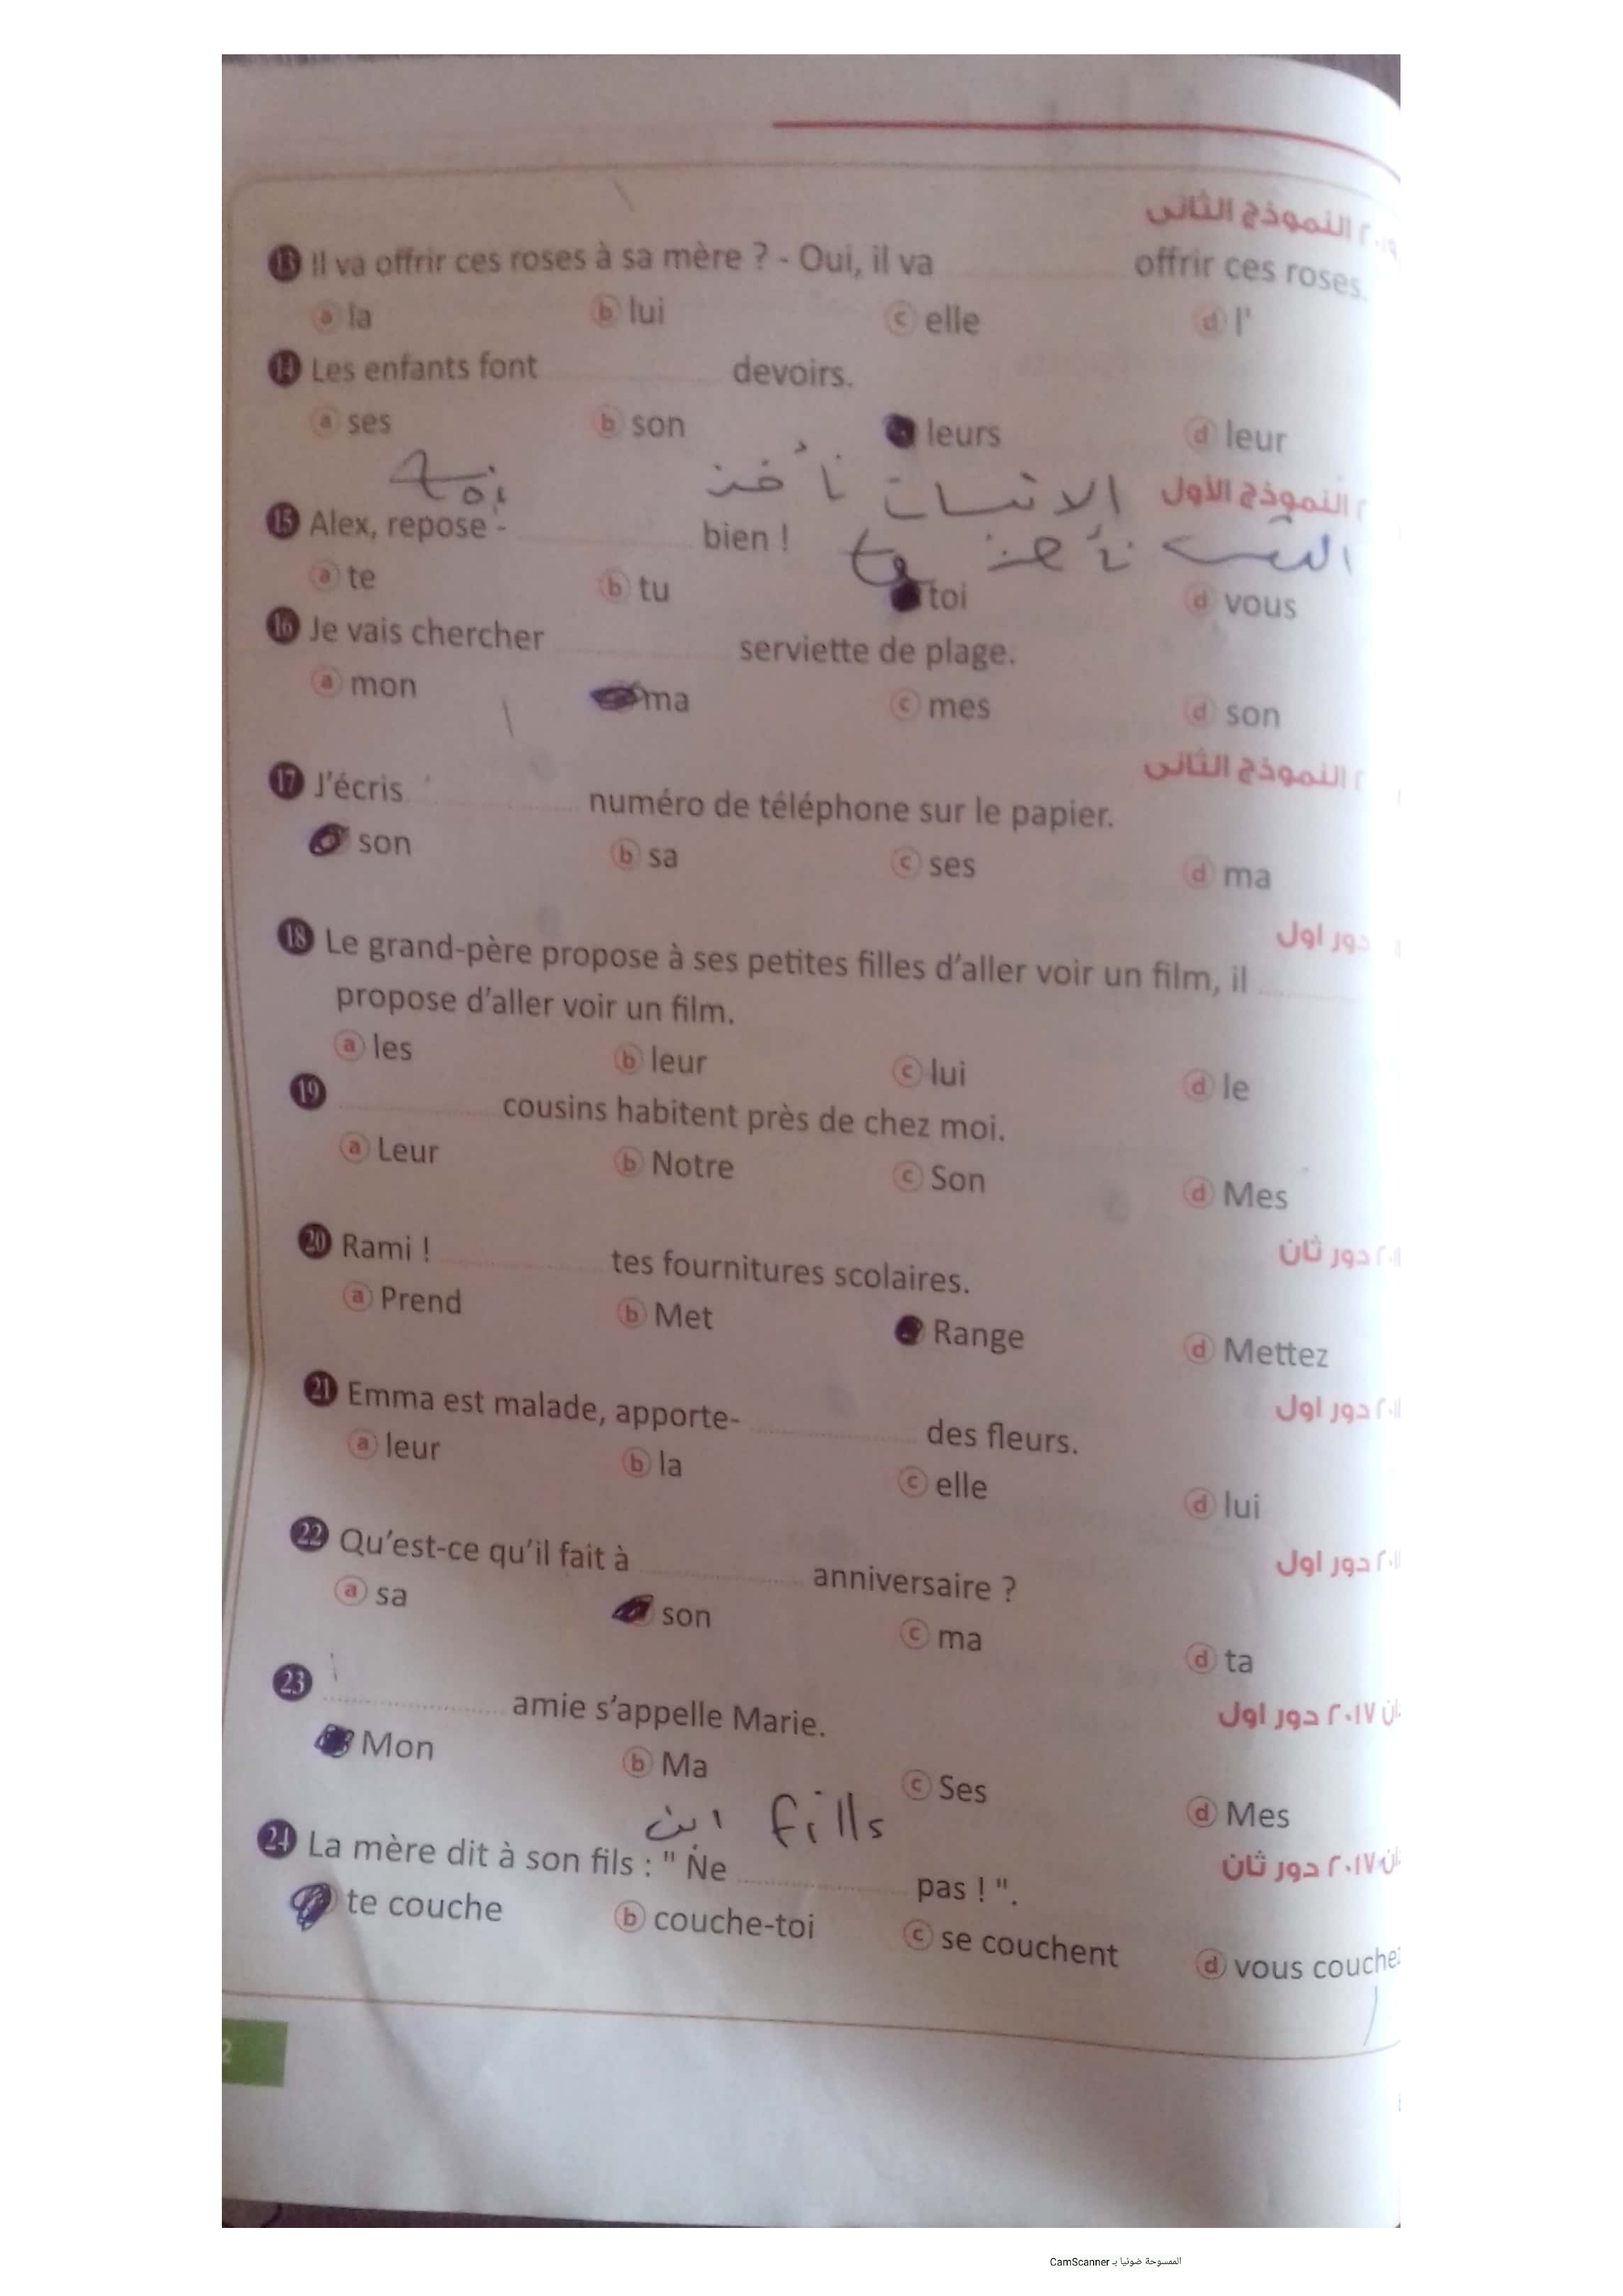 النموذج الثانى
13 Il va offrir ces roses à sa mère ? - Oui, il va ............ offrir ces roses.
a la b lui c elle d l'
14 Les enfants font ............ devoirs.
a ses b son leurs d leur
toi الاثبات نأخذ
النموذج الأول
15 Alex, repose - ............ bien !
نأخذ
a te b tu toi d vous
16 Je vais chercher ............ serviette de plage.
a mon ma c mes d son
النموذج الثانى
17 J'écris ............ numéro de téléphone sur le papier.
son b sa c ses d ma
دور اول
18 Le grand-père propose à ses petites filles d'aller voir un film, il ............
propose d'aller voir un film.
a les b leur c lui d le
19 ............ cousins habitent près de chez moi.
a Leur b Notre c Son d Mes
دور ثان
20 Rami ! ............ tes fournitures scolaires.
a Prend b Met Range d Mettez
دور اول
21 Emma est malade, apporte- ............ des fleurs.
a leur b la c elle d lui
دور اول
22 Qu'est-ce qu'il fait à ............ anniversaire ?
a sa son c ma d ta
٢٠١٧ دور اول
23 ............ amie s'appelle Marie.
Mon b Ma c Ses d Mes
ابن fills
٢٠١٧ دور ثان
24 La mère dit à son fils : " Ne ............ pas ! ".
te couche b couche-toi c se couchent d vous couchez
2
الممسوحة ضوئيا بـ CamScanner